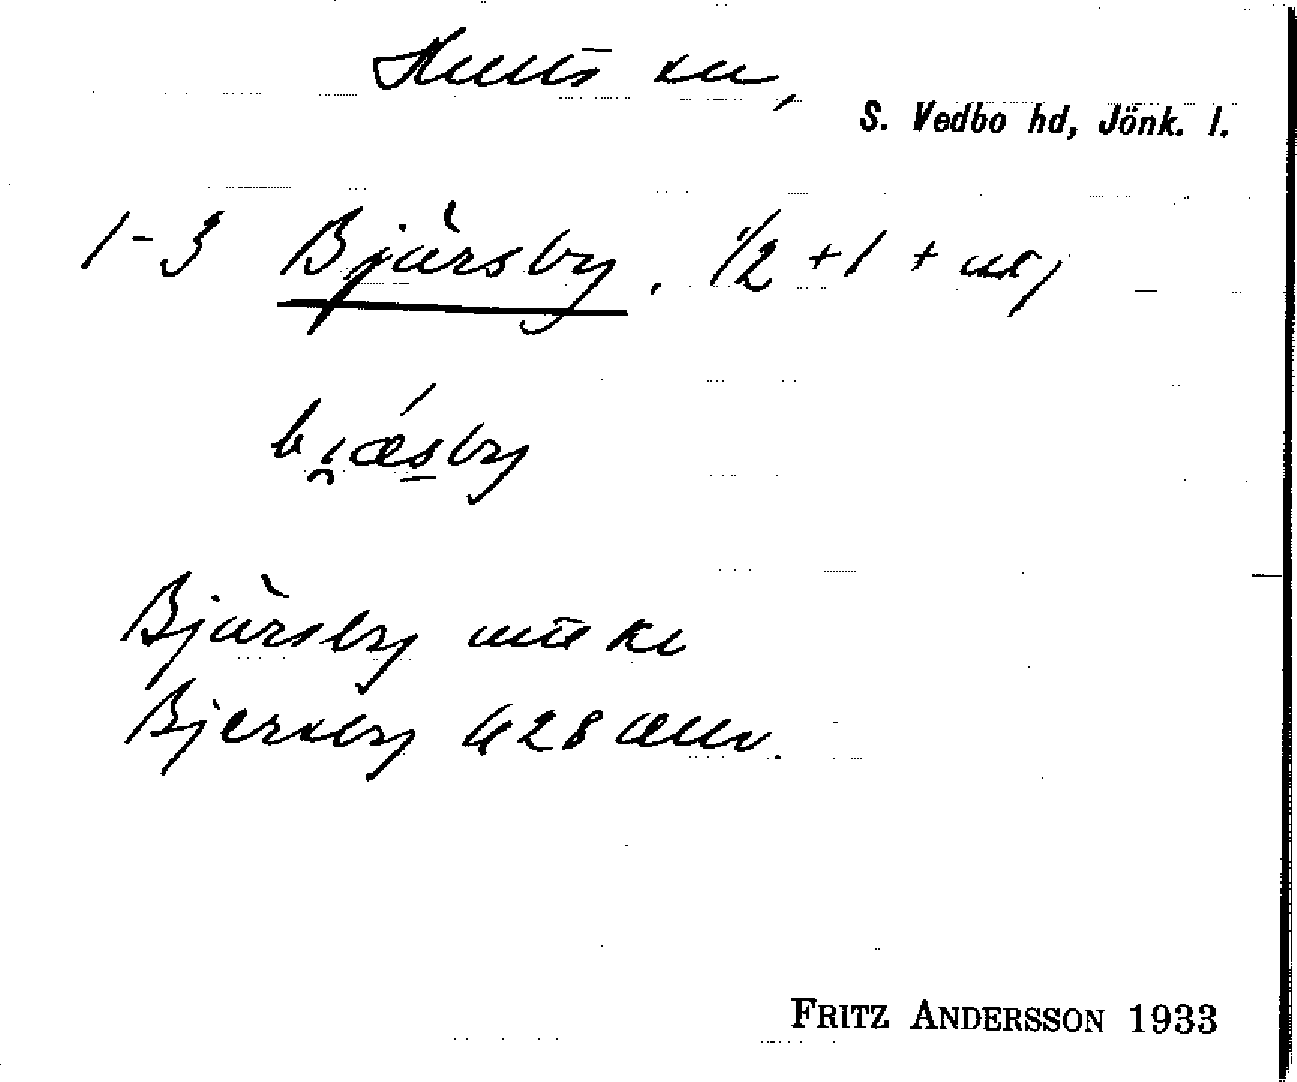 Hults sn,
S. Vedbo hd, Jönk. l.
1-3 Bjärsby. 1/2 + 1 +
bi̯ǽsby
Bjärsby
Bjersby 428
FRITZ ANDERSSON 1933